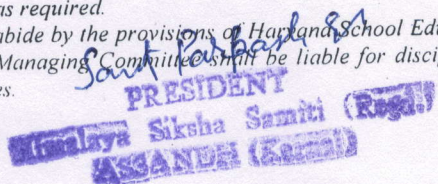 as required.
abide by the provisions of Haryana School Edu
Managing Committee shall be liable for discip
es.
Sant Parkash
PRESIDENT
Himalaya Siksha Samiti (Regd.)
ASSANDH (Karnal)